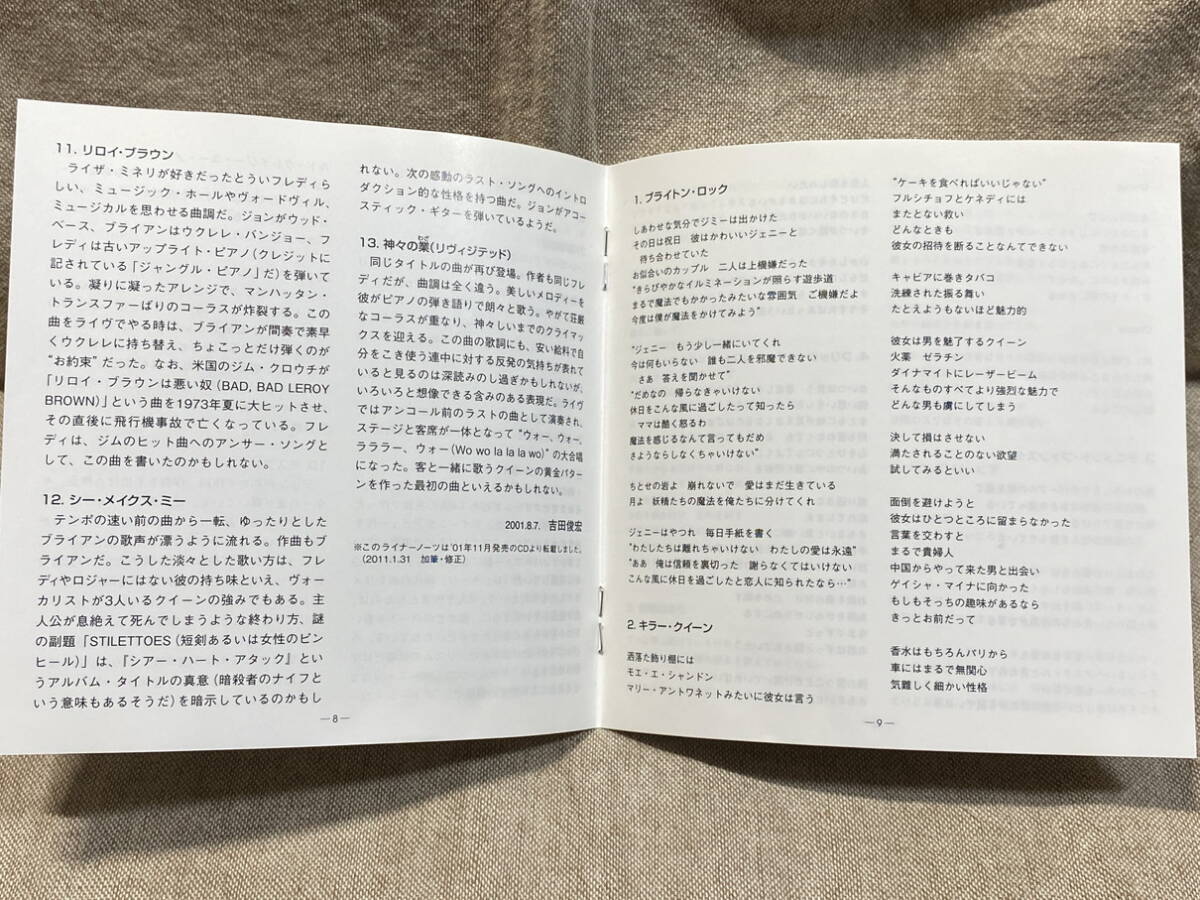 11. リロイ・ブラウン
ライザ・ミネリが好きだったというフレディら
しい、ミュージック・ホールやヴォードヴィル、
ミュージカルを思わせる曲調だ。ジョンがウッド・
ベース、ブライアンはウクレレ・バンジョー、フ
レディは古いアップライト・ピアノ(クレジットに
記されている「ジャングル・ピアノ」だ)を弾いて
いる。凝りに凝ったアレンジで、マンハッタン・
トランスファーばりのコーラスが炸裂する。この
曲をライヴでやる時は、ブライアンが間奏で素早
くウクレレに持ち替え、ちょこっとだけ弾くのが
“お約束”だった。なお、米国のジム・クロウチが
「リロイ・ブラウンは悪い奴(BAD, BAD LEROY
BROWN)」という曲を1973年夏に大ヒットさせ、
その直後に飛行機事故で亡くなっている。フレ
ディは、ジムのヒット曲へのアンサー・ソングと
して、この曲を書いたのかもしれない。
12. シー・メイクス・ミー
テンポの速い前の曲から一転、ゆったりとした
ブライアンの歌声が漂うように流れる。作曲もブ
ライアンだ。こうした淡々とした歌い方は、フレ
ディやロジャーにはない彼の持ち味といえ、ヴォー
カリストが3人いるクイーンの強みでもある。主
人公が息絶えて死んでしまうような終わり方、謎
の副題「STILETTOES(短剣あるいは女性のピン
ヒール)」は、『シアー・ハート・アタック』とい
うアルバム・タイトルの真意(暗殺者のナイフと
いう意味もあるそうだ)を暗示しているのかもし
れない。次の感動のラスト・ソングへのイントロ
ダクション的な性格を持つ曲だ。ジョンがアコー
スティック・ギターを弾いているようだ。
13. 神々の業(わざ)(リヴィジテッド)
同じタイトルの曲が再び登場。作者も同じフレ
ディだが、曲調は全く違う。美しいメロディーを
彼がピアノの弾き語りで朗々と歌う。やがて荘厳
なコーラスが重なり、神々しいまでのクライマッ
クスを迎える。この曲の歌詞にも、安い給料で自
分をこき使う連中に対する反発の気持ちが表れて
いると見るのは深読みのし過ぎかもしれないが、
いろいろと想像できる含みのある表現だ。ライヴ
ではアンコール前のラストの曲として演奏され、
ステージと客席が一体となって“ウォー、ウォー、
ラララー、ウォー(Wo wo la la la wo)”の大合唱
になった。客と一緒に歌うクイーンの黄金パター
ンを作った最初の曲といえるかもしれない。
2001.8.7. 吉田俊宏
※このライナーノーツは'01年11月発売のCDより転載しました。
(2011.1.31 加筆・修正)
—8—
1. ブライトン・ロック
しあわせな気分でジミーは出かけた
その日は祝日 彼はかわいいジェニーと
待ち合わせていた
お似合いのカップル 二人は上機嫌だった
“きらびやかなイルミネーションが照らす遊歩道
まるで魔法でもかかったみたいな雰囲気 ご機嫌だよ
今度は僕が魔法をかけてみよう”
“ジェニー もう少し一緒にいてくれ
今は何もいらない 誰も二人を邪魔できない
さあ 答えを聞かせて”
“だめなの 帰らなきゃいけない
休日をこんな風に過ごしたって知ったら
ママは酷く怒るわ
魔法を感じるなんて言ってもだめ
さようならしなくちゃいけない”
ちとせの岩よ 崩れないで 愛はまだ生きている
月よ 妖精たちの魔法を俺たちに分けてくれ
ジェニーはやつれ 毎日手紙を書く
“わたしたちは離れちゃいけない わたしの愛は永遠”
“ああ 俺は信頼を裏切った 謝らなくてはいけない
こんな風に休日を過ごしたと恋人に知られたなら…”
2. キラー・クイーン
洒落た飾り棚には
モエ・エ・シャンドン
マリー・アントワネットみたいに彼女は言う
“ケーキを食べればいいじゃない”
フルシチョフとケネディには
またとない救い
どんなときも
彼女の招待を断ることなんてできない
キャビアに巻きタバコ
洗練された振る舞い
たとえようもないほど魅力的
彼女は男を魅了するクイーン
火薬 ゼラチン
ダイナマイトにレーザービーム
そんなものすべてより強烈な魅力で
どんな男も虜にしてしまう
決して損はさせない
満たされることのない欲望
試してみるといい
面倒を避けようと
彼女はひとつところに留まらなかった
言葉を交わすと
まるで貴婦人
中国からやって来た男と出会い
ゲイシャ・マイナに向かった
もしもそっちの趣味があるなら
きっとお前だって
香水はもちろんパリから
車にはまるで無関心
気難しく細かい性格
—9—